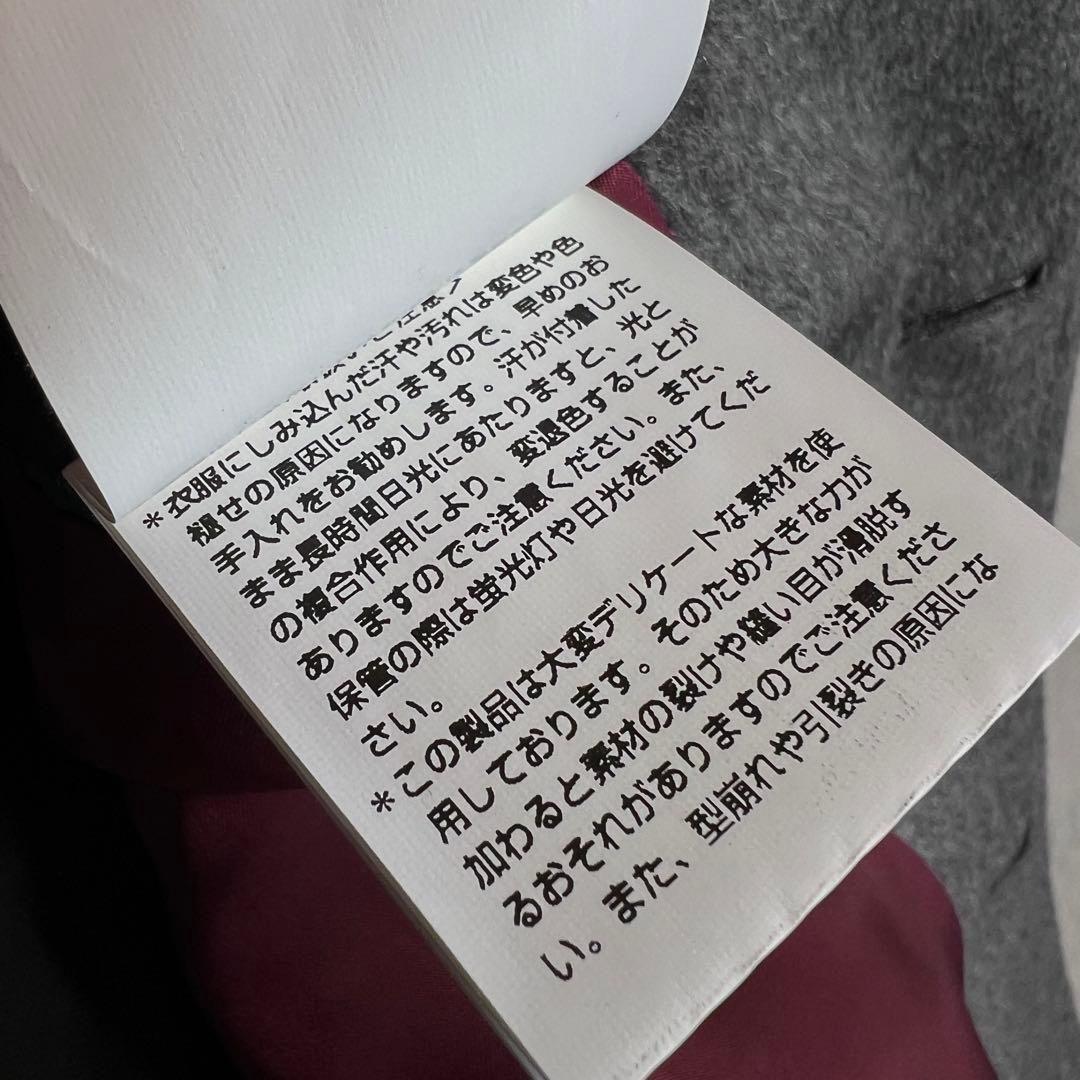 ご注意＞
＊衣服にしみ込んだ汗や汚れは変色や色
褪せの原因になりますので、早めのお
手入れをお勧めします。汗が付着した
まま長時間日光にあたりますと、光と
の複合作用により、変退色することが
ありますのでご注意ください。また、
保管の際は蛍光灯や日光を避けてくだ
さい。
＊この製品は大変デリケートな素材を使
用しております。そのため大きな力が
加わると素材の裂けや縫い目が滑脱す
るおそれがありますのでご注意くださ
い。また、型崩れや引裂きの原因にな